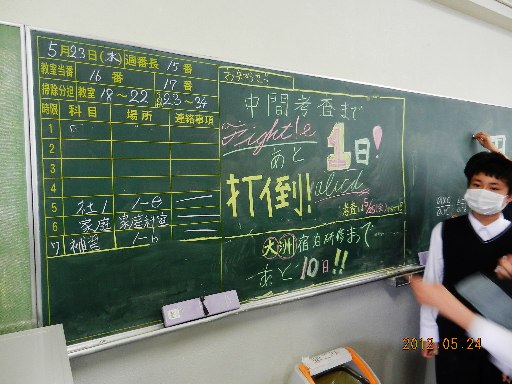 5月23日(木) 週番長 15番
教室当番 16番 17番
掃除分担 教室 18～22 23～34
時限 科目 場所 連絡事項
1
2
3
4
5 社1
6 家庭 家庭科室
7 補習 1-6
お知らせ!!
中間考査まで
Fight!e
あと
1日!
打倒!
大洲宿泊研修まで…
あと10日!!
2012.05.24